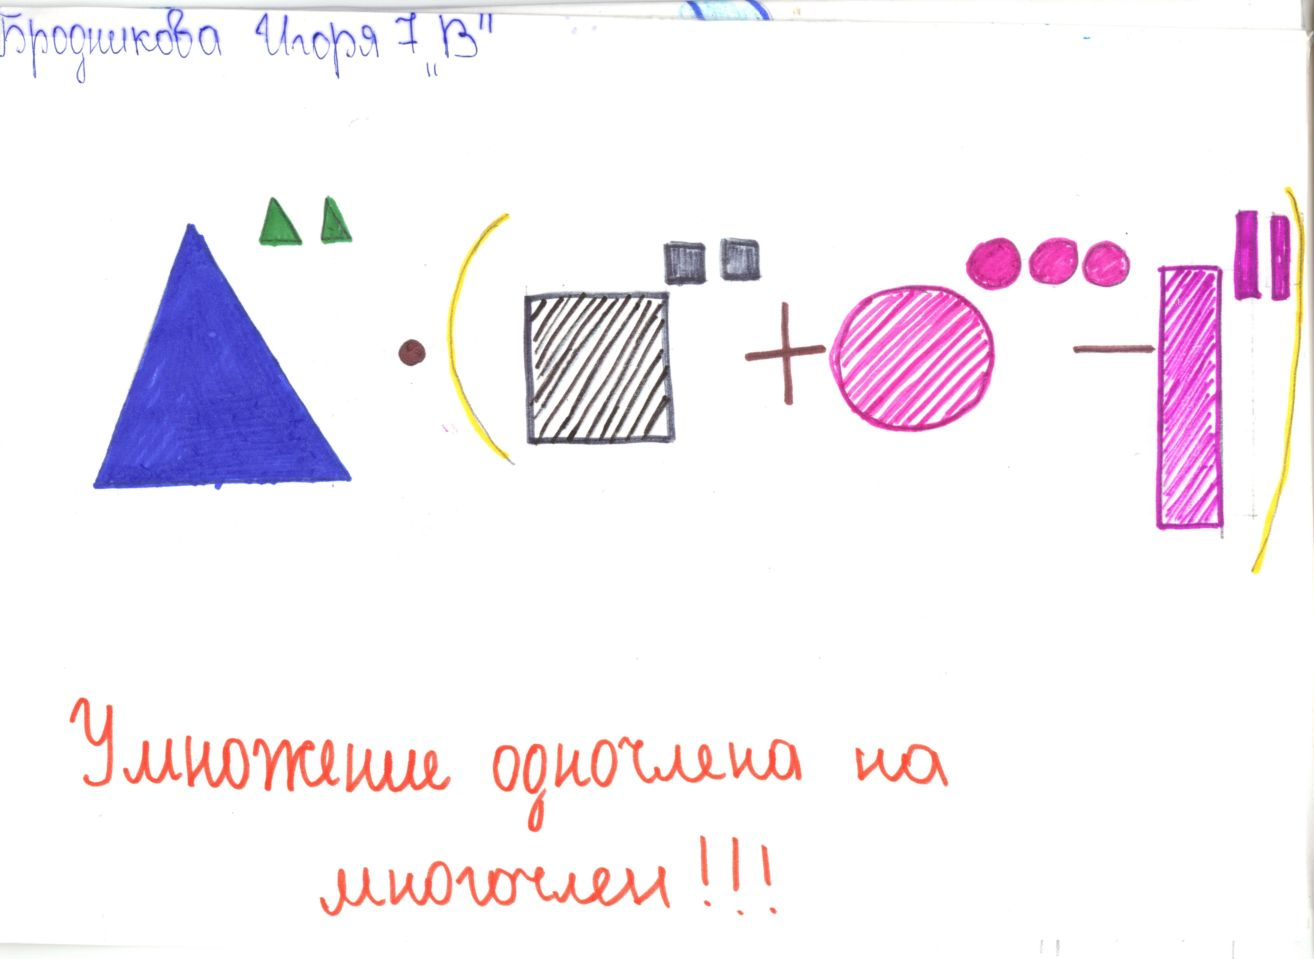 Бродникова Игоря 7 „В"
Умножение одночлена на
многочлен!!!